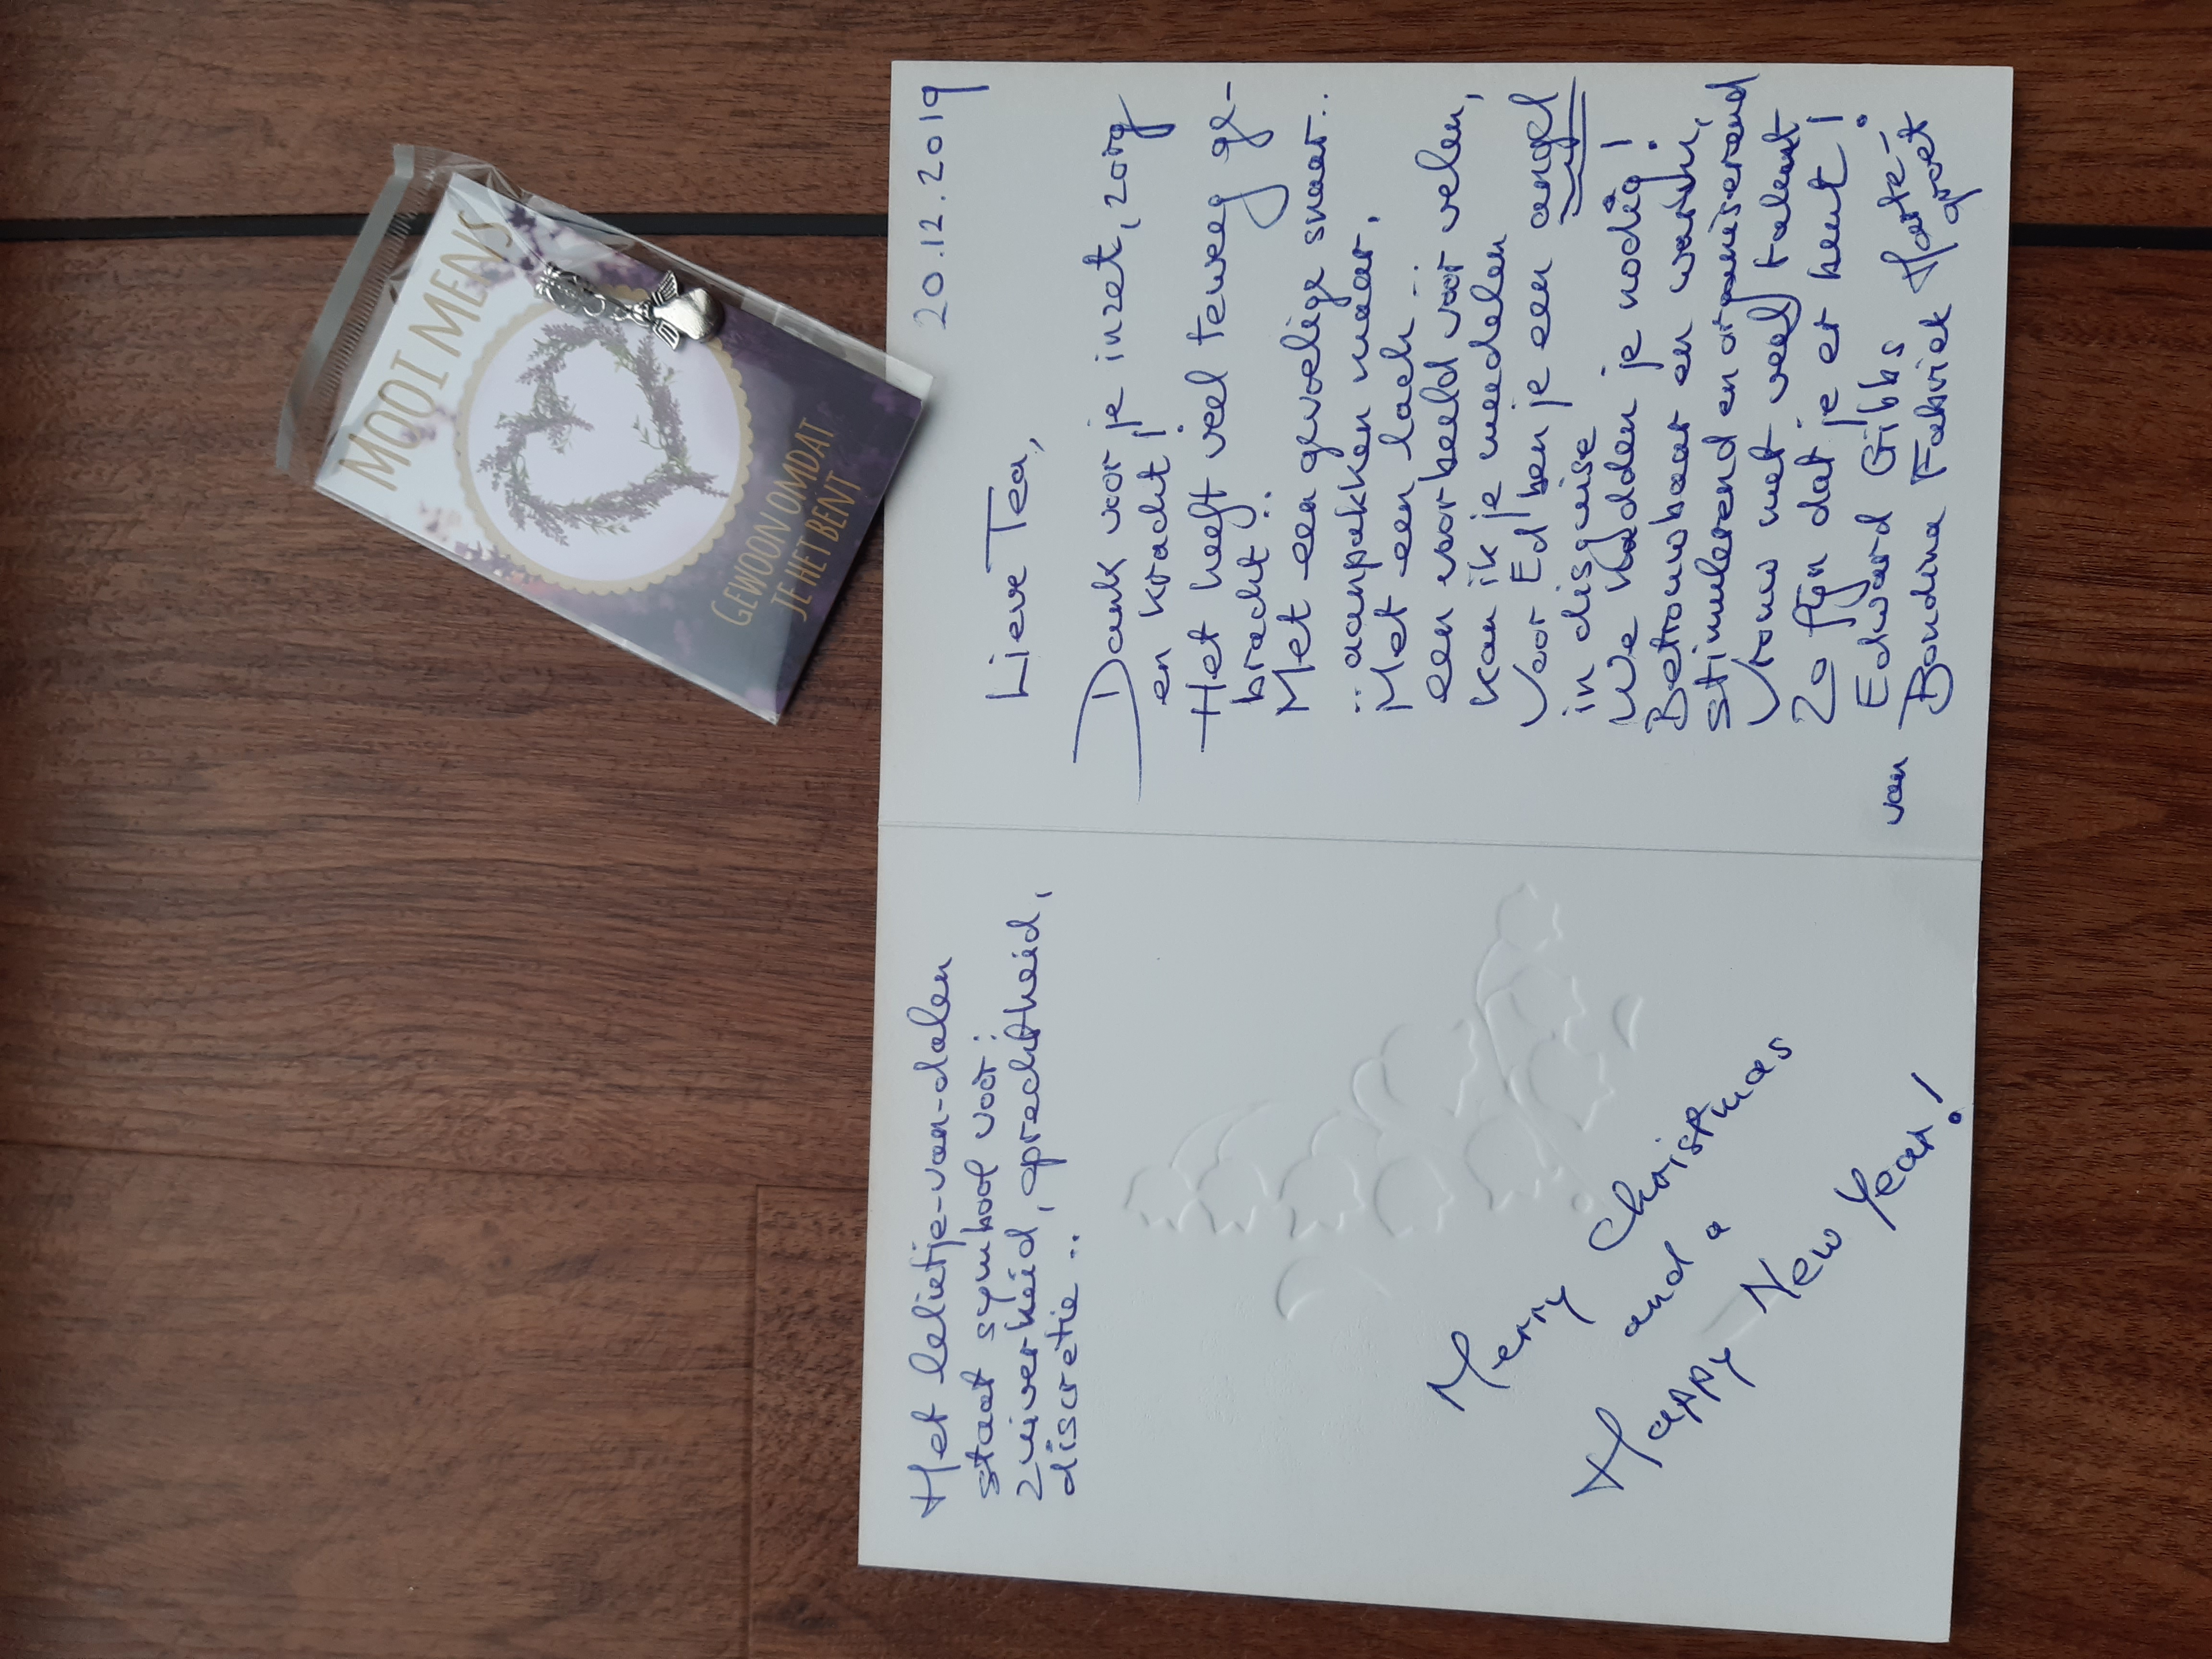 MOOI MENS
GEWOON OMDAT
JE HET BENT
Het lelietje-van-dalen
staat symbool voor:
zuiverheid, oprechtheid,
discretie..
Merry Christmas
and a
Happy New Year!
20.12.2019
Lieve Tea,
Dank voor je inzet, zorg
en kracht!
Het heeft veel teweeg ge-
bracht!..
Met een gevoelige snaar..
...aanpakken maar,
Met een lach...
een voorbeeld voor velen,
kan ik je meedelen
Voor Ed ben je een angel
in disguise
We hadden je nodig!
Betrouwbaar en warm,
stimulerend en organiserend
Vrouw met veel talent
Zo fijn dat je er bent!
Edward Gibbs Harte-
van Bondina Fabriek groet